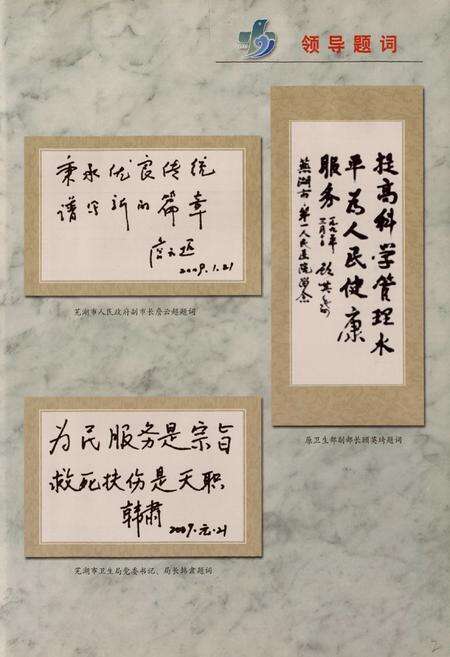 领导题词
秉承优良传统
谱写新的篇章
2009.1.21
芜湖市人民政府副市长詹云超题词
提高科学管理水
平为人民健康
服务
芜湖市第一人民医院留念
原卫生部副部长顾英琦题词
为民服务是宗旨
救死扶伤是天职
韩肃
2009.元.21
芜湖市卫生局党委书记、局长韩肃题词
2